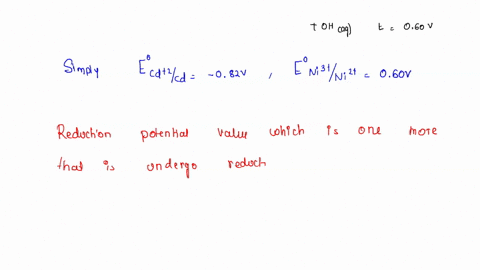 + OH (aq) E = 0.60 V
Simply E⁰ Cd+2/Cd = -0.82V , E⁰ Ni3+/Ni2+ = 0.60V
Reduction potential value which is one more
that is undergo reduch